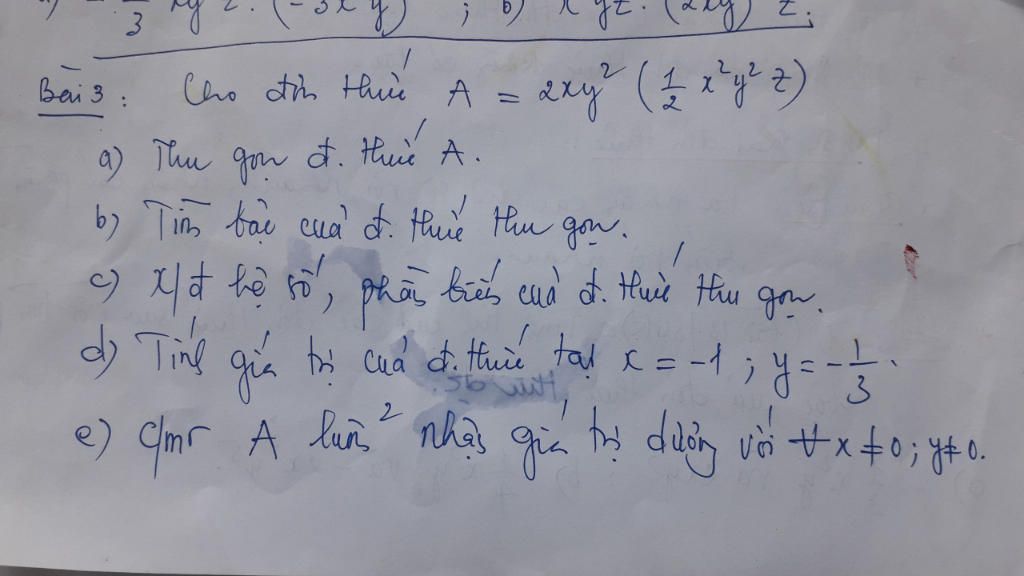 a) -1/3 xy²z . (-3x²y) ; b) x²yz . (2xy)² z;
Bài 3 : Cho đơn thức A = 2xy² (1/2 x²y² z)
a) Thu gọn đ. thức A.
b) Tìm bậc của đ. thức thu gọn.
c) x/đ hệ số, phần biến của đ. thức thu gọn.
d) Tính giá trị của đ. thức tại x = -1 ; y = -1/3.
e) c/mr A luôn² nhận giá trị dương với ∀x ≠ 0 ; y ≠ 0.